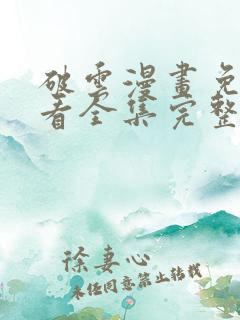 破雲漫畫免
看全集完整
徐妻心
未经同意禁止转载